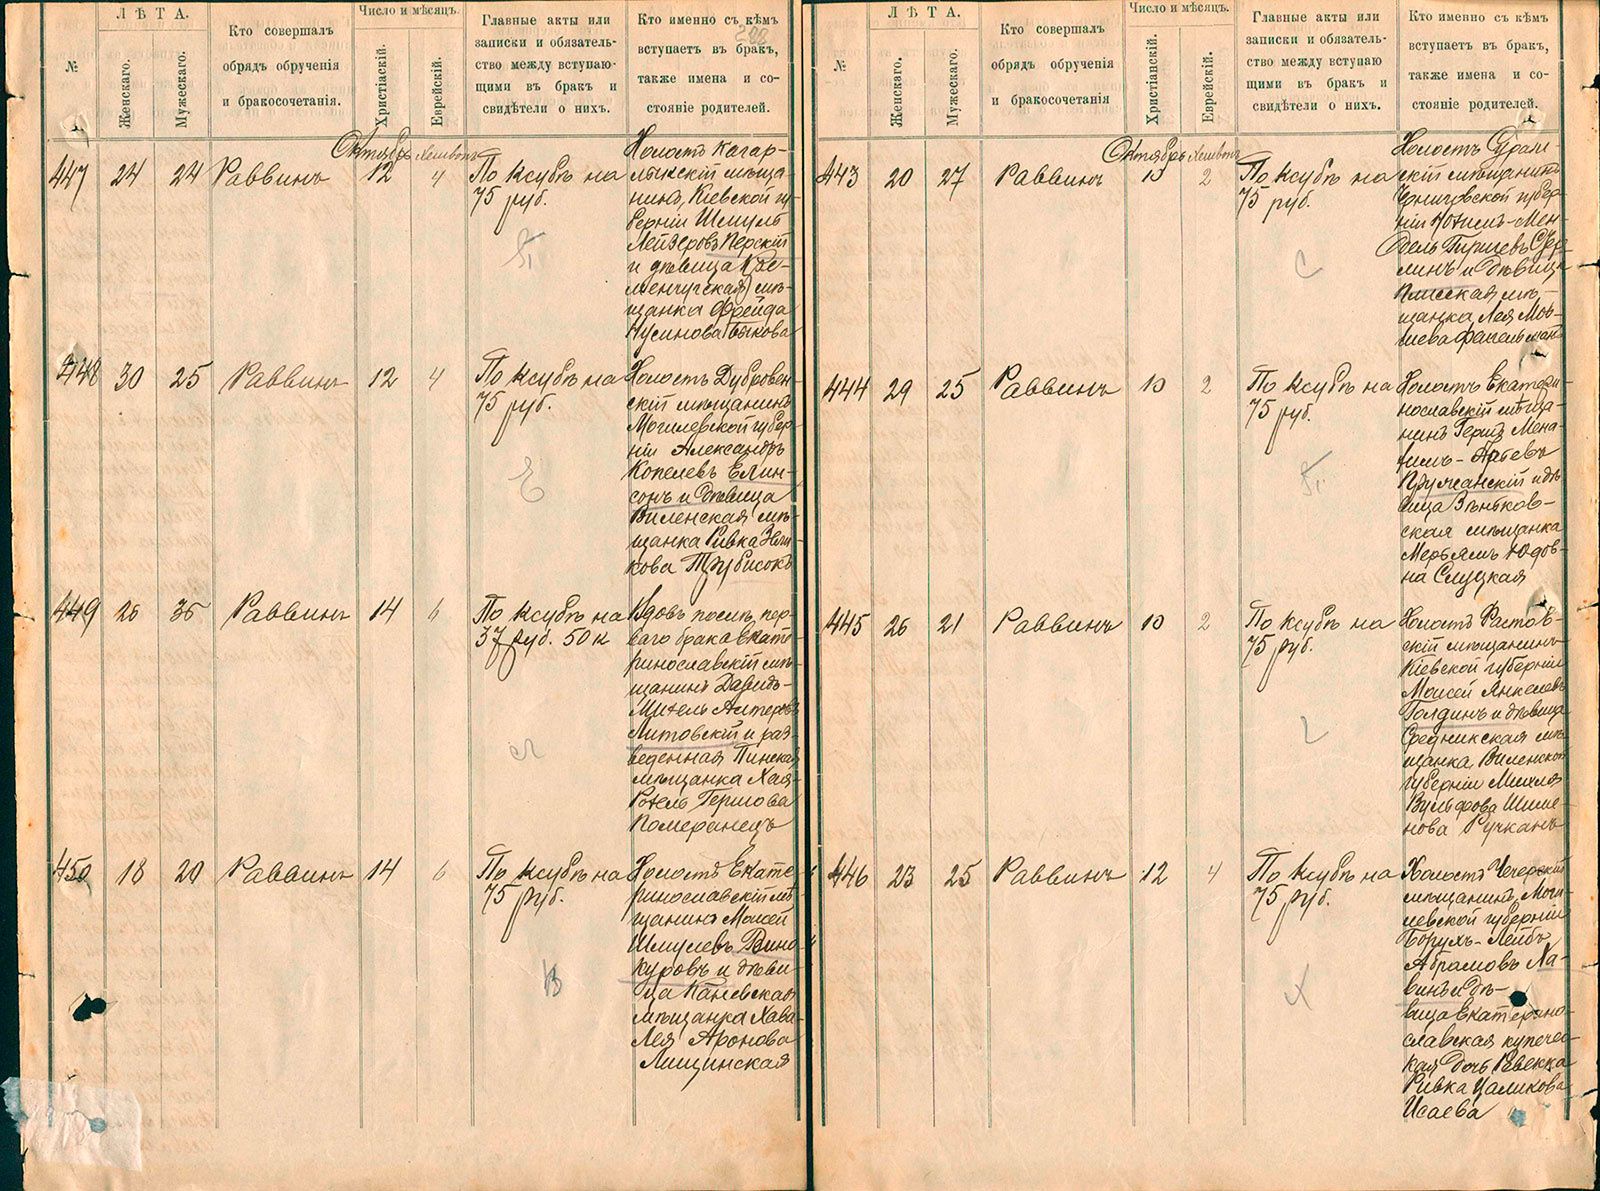 Л Ѣ Т А.
№
Женскаго.
Мужескаго.
Кто совершалъ
обрядъ обрученія
и бракосочетанія.
Число и мѣсяцъ.
Христіаскій.
Еврейскій.
Главные акты или
записки и обязатель-
ство между вступаю-
щими въ бракъ и
свидѣтели о нихъ.
Кто именно съ кѣмъ
вступаетъ въ бракъ,
также имена и со-
стояніе родителей.
Октябрь Хешвонъ
447 24 24 Раввинъ 12 4
По ксубѣ на
75 руб.
Холостъ Кагар-
лыкскій мѣща-
нинъ, Кіевской гу-
берніи Шмуль
Лейзеровъ Перскій
и дѣвица Кре-
менчугская мѣ-
щанка Фрейда
Нусинова Быкова
П
448 30 25 Раввинъ 12 4
По ксубѣ на
75 руб.
Холостъ Дубровен-
скій мѣщанинъ
Могилевской губер-
ніи Александръ
Копелевъ Елин-
сонъ и дѣвица
Виленская мѣ-
щанка Ривка
кова
Е
449 26 36 Раввинъ 14 6
По ксубѣ на
37 руб. 50 к
Вдовъ послѣ пер-
ваго брака Екате-
ринославскій мѣ-
щанинъ Давидъ-
Михель Алтеровъ
Литовскій и раз-
веденная Пинская
мѣщанка Хая-
Рохель Гершова
Померанецъ
Л
450 18 20 Раввинъ 14 6
По ксубѣ на
75 руб.
Холостъ Екате-
ринославскій мѣ-
щанинъ Моисей
Шмулевъ Вино-
куровъ и дѣви-
ца Каневская
мѣщанка Хава-
Лея Аронова
Лищинская
В
Л Ѣ Т А.
№
Женскаго.
Мужескаго.
Кто совершалъ
обрядъ обрученія
и бракосочетанія
Число и мѣсяцъ.
Христіанскій.
Еврейскій.
Главные акты или
записки и обязатель-
ство между вступаю
щими въ бракъ и
свидѣтели о нихъ.
Кто именно съ кѣмъ
вступаетъ въ бракъ,
также имена и со-
стояніе родителей.
Октябрь Хешвонъ
443 20 27 Раввинъ 10 2
По ксубѣ на
75 руб.
Холостъ Сураж-
скій мѣщанинъ
Черниговской губер-
ніи Нохимъ-Мен-
дель Гиршевъ
линъ и дѣвица
Плисская мѣ-
щанка Лея Мов-
шева
С
444 29 25 Раввинъ 10 2
По ксубѣ на
75 руб.
Холостъ Екатери-
нославскій мѣща-
нинъ Герцъ Мена-
химъ-Арьевъ
Пружанскій и дѣ-
вица Зѣньков-
ская мѣщанка
Мерьямъ Юдов-
на Слуцкая
П
445 26 21 Раввинъ 10 2
По ксубѣ на
75 руб.
Холостъ Фастов-
скій мѣщанинъ
Кіевской губерніи
Моисей Янкелевъ
Голдинъ и дѣвица
Средникская мѣ-
щанка Виленской
губерніи Михля
Вульфова Шиме-
нова Ручканъ
Г
446 23 25 Раввинъ 12 4
По ксубѣ на
75 руб.
Холостъ Чечерскій
мѣщанинъ, Моги-
левской губерніи
Борухъ-Лейбъ
Абрамовъ Ха-
винъ и дѣ-
вица Екатерино-
славская купечес-
кая дочь Ревекка
Ривка Цаликова
Исаева
Х